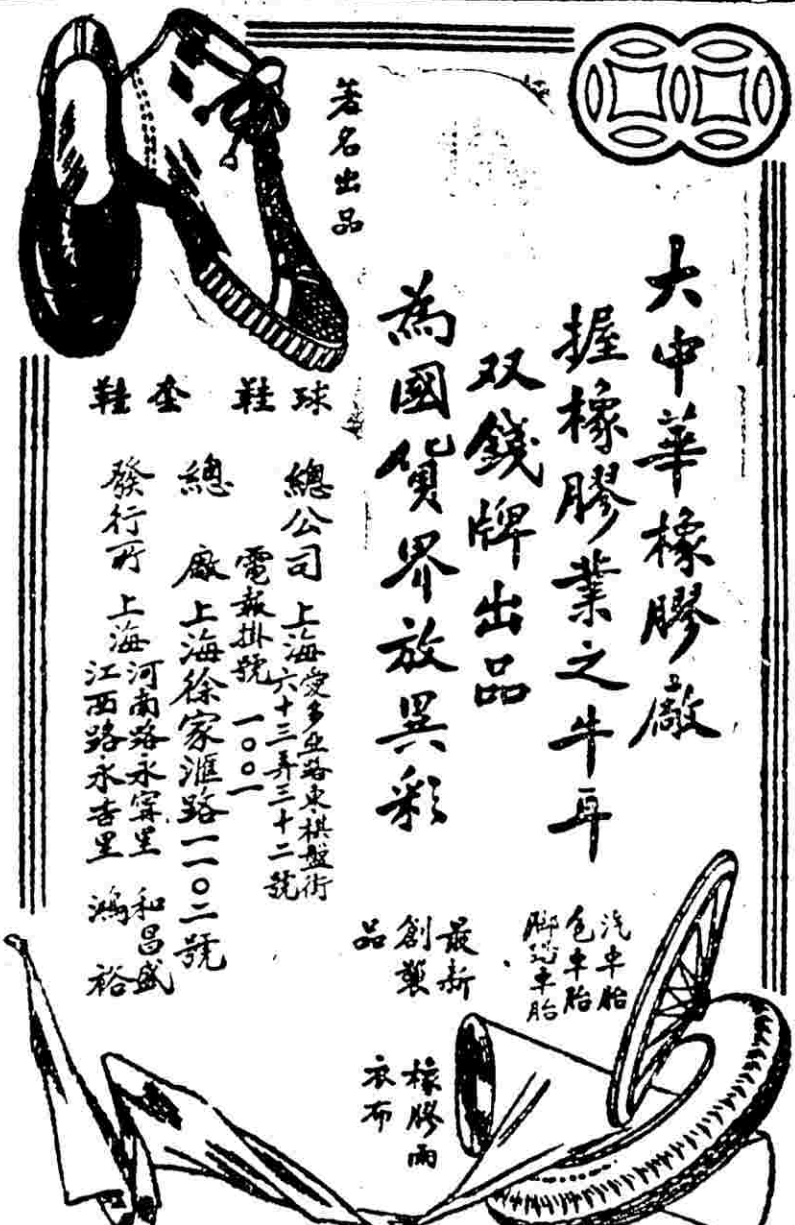 大中華橡膠廠
握橡膠業之牛耳
双錢牌出品
為國貨界放異彩
著名出品
球鞋
套鞋
總公司 上海愛多亞路東棋盤街
六十三弄三十二號
電報掛號 一〇〇一
總廠 上海徐家滙路一一〇二號
發行所 上海
河南路永寧里 和昌盛
江西路永吉里 鴻裕
汽車胎
包車胎
脚踏車胎
最新
創製
品
橡膠雨
衣布